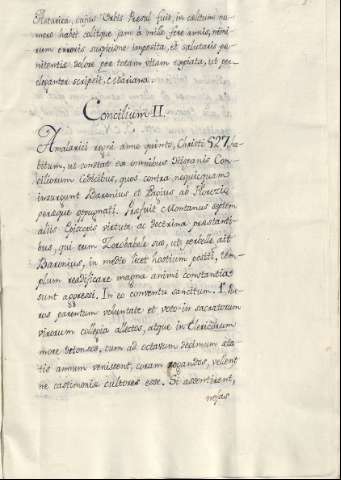 Bracarica, cujus Urbis Presul fuit, in coelitum nu-
mero habet colitque jam à mille fere annis, nimi-
rum erroris suspicione imposita, et salutaris pe-
nitentie dolore per totam vitam expiata, ut per-
eleganter scripsit, Mariana.
Concilium II.
Amalarici regni anno quinto, Christi 527, ha-
bitum, ut constat ex omnibus Hispanis Con-
ciliorum Codicibus, quos contra nequicquam
insurgunt Baronius et
perague oppugnati. Prefuit Montanus septem
aliis Episcopis virtute ac doctrina prestanti-
bus, qui cum Zorobabele suo, ut perbelle ait
Baronius, in medio licet hostium positi, tem-
plum reedificare magna animi constantia
sunt aggressi. In eo conventu sancitum. 1º. Pue-
ros parentum voluntate et voto in sacratorum
virorum collegia allectos, atque in Clericorum
more detonsos, cum ad octavum decimum eta-
tis annum venissent, coram rogandos, velent
ne castimonie cultores esse. Si assentirent,